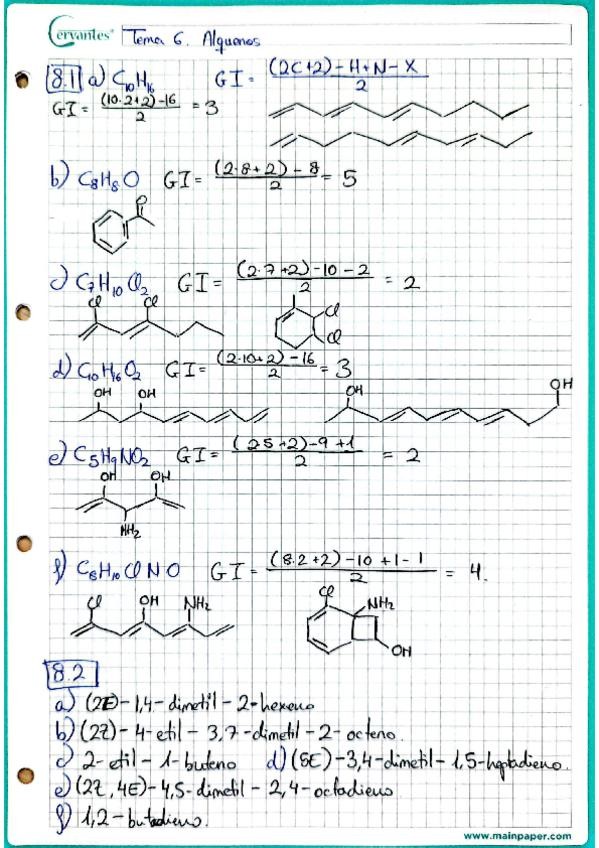 Cervantes® Tema 6. Alquenos
8.1 a) C₁₀H₁₆ GI = (2C+2)-H+N-X / 2
GI = (10·2+2)-16 / 2 = 3
b) C₈H₈O GI = (2·8+2)-8 / 2 = 5
O
c) C₇H₁₀Cl₂ GI = (2·7+2)-10-2 / 2 = 2
Cl Cl Cl Cl
d) C₁₀H₁₆O₂ GI = (2·10+2)-16 / 2 = 3
OH OH OH OH
e) C₅H₉NO₂ GI = (2·5+2)-9+1 / 2 = 2
OH OH
NH₂
f) C₈H₁₀ClNO GI = (8·2+2)-10+1-1 / 2 = 4.
Cl OH NH₂ Cl NH₂
OH
8.2
a) (2E)-1,4-dimetil-2-hexeno
b) (2Z)-4-etil-3,7-dimetil-2-octeno.
c) 2-etil-1-buteno d) (5E)-3,4-dimetil-1,5-heptadieno.
e) (2Z,4E)-4,5-dimetil-2,4-octadieno
f) 1,2-butadieno.
www.mainpaper.com